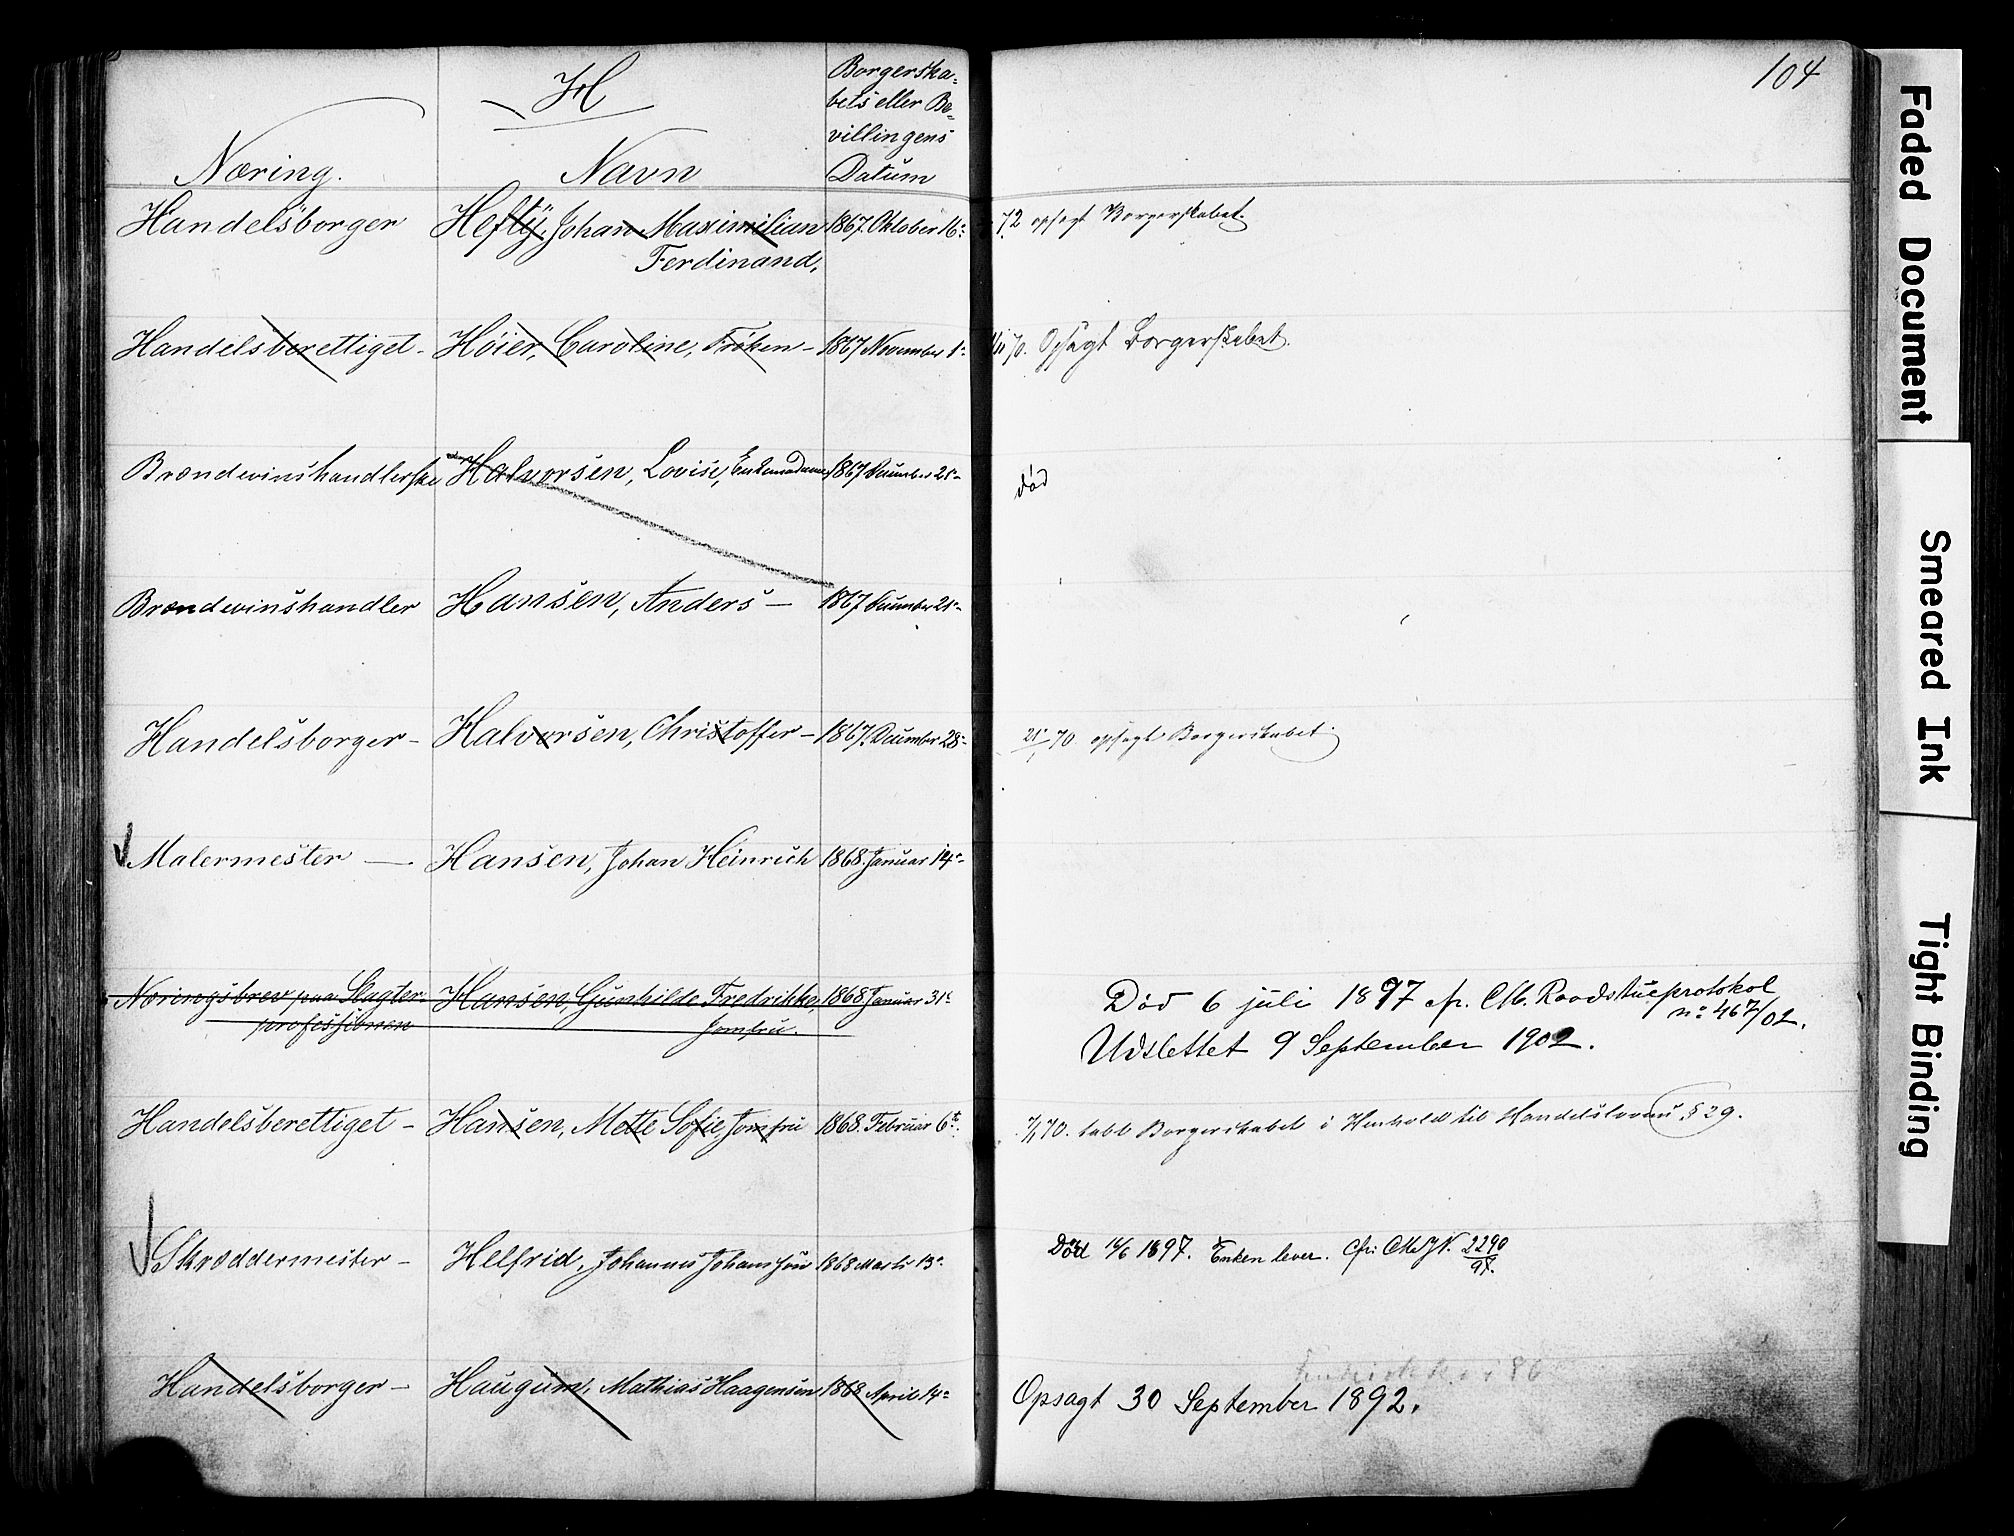 H
Borgerska=
bets eller Be=
villingens
Datum
Næring.
Navn
104
Handelsborger Hefty, Johan Maximilian 1867. Oktober 16.
Ferdinand,
72 opsagt Borgerskabet.
Handelsberettiget - Höier, Caroline, Fröken - 1867 November 1.
70. Opsagt Borgerskabet.
Brændevinshandlerske Halvorsen, Lovise, Enkemadame 1867 December 21.
død
Brændevinshandler Hansen, Anders - 1867 December 21.
Handelsborger - Halvorsen, Christoffer - 1867. December 28.
21/1 70. opsagt Borgerskabet.
Malermester - Hansen, Johan Heinrich 1868. Januar 14.
Næringsbrev paa Slagter- Hansen, Gunhilde Fredrikke, 1868 Januar 31.
professionen Jomfru.
Död 6 juli 1897 cfr. Chr. Raadstueprotokol
no 467/02.
Udslettet 9 September 1902.
Handelsberettiget - Hansen, Mette Sofie, Jomfru 1868. Februar 6te
7/1 70. tabt Borgerskabet i Henhold til Handelslovens § 29.
Skræddermester - Helfrid, Johannes Johanssön 1868 Marts 13.
Död 16/6 1897. Enken lever. cfr. 2290/97.
Handelsborger - Haugum, Mathias Haagensen 1868 April 14.
Opsagt 30 September 1892.
Faded Document
Smeared Ink
Tight Binding